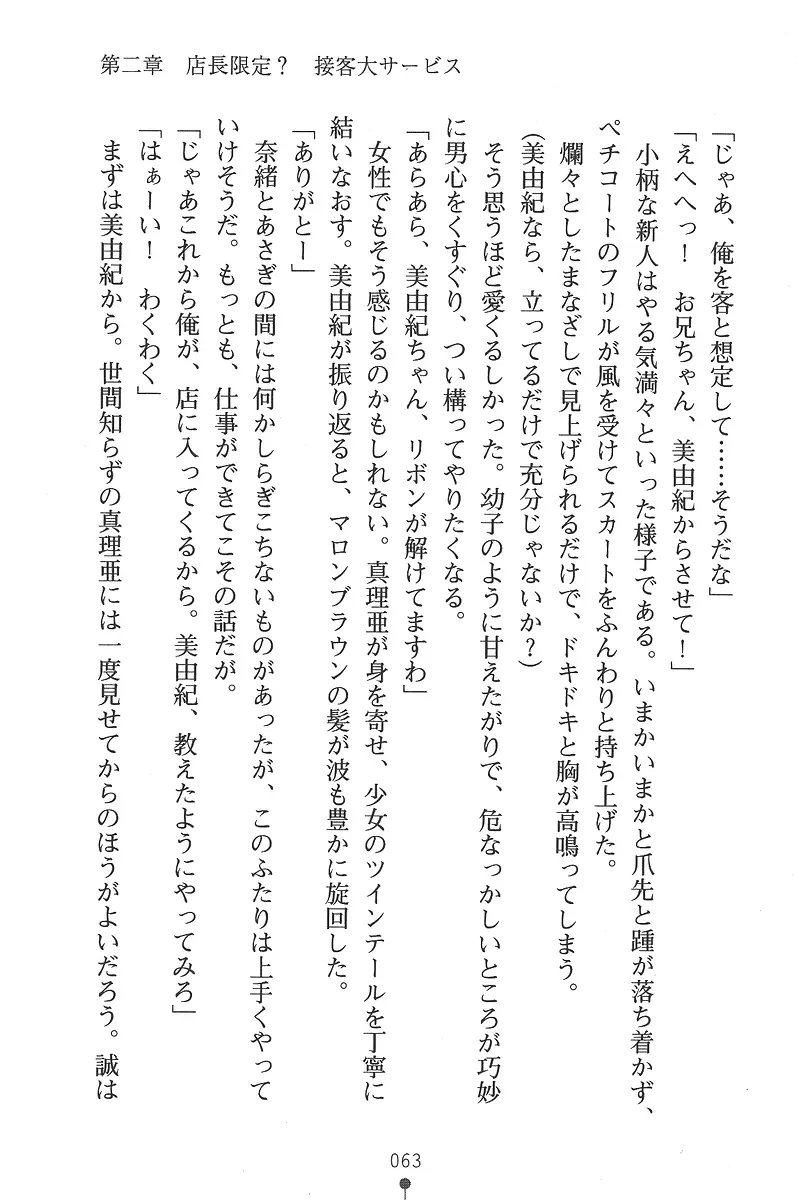 第二章　店長限定？　接客大サービス
「じゃあ、俺を客と想定して……そうだな」
「えへへっ！　お兄ちゃん、美由紀からさせて！」
　小柄な新人はやる気満々といった様子である。いまかいまかと爪先と踵が落ち着かず、
ペチコートのフリルが風を受けてスカートをふんわりと持ち上げた。
　爛々としたまなざしで見上げられるだけで、ドキドキと胸が高鳴ってしまう。
（美由紀なら、立ってるだけで充分じゃないか？）
　そう思うほど愛くるしかった。幼子のように甘えたがりで、危なっかしいところが巧妙
に男心をくすぐり、つい構ってやりたくなる。
「あらあら、美由紀ちゃん、リボンが解けてますわ」
　女性でもそう感じるのかもしれない。真理亜が身を寄せ、少女のツインテールを丁寧に
結いなおす。美由紀が振り返ると、マロンブラウンの髪が波も豊かに旋回した。
「ありがとー」
　奈緒とあさぎの間には何かしらぎこちないものがあったが、このふたりは上手くやって
いけそうだ。もっとも、仕事ができてこその話だが。
「じゃあこれから俺が、店に入ってくるから。美由紀、教えたようにやってみろ」
「はぁーい！　わくわく」
　まずは美由紀から。世間知らずの真理亜には一度見せてからのほうがよいだろう。誠は
063